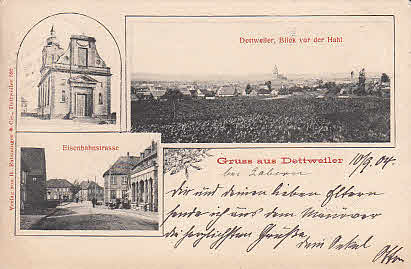 Dettweiler, Blick vor der Hohl
Eisenbahnstrasse
Gruss aus Dettweiler
10/9.04.
bei Zabern
dir und deinen lieben Eltern
sende ich aus dem Manöver
die herzlichsten Grüße,
dein Onkel
Otto